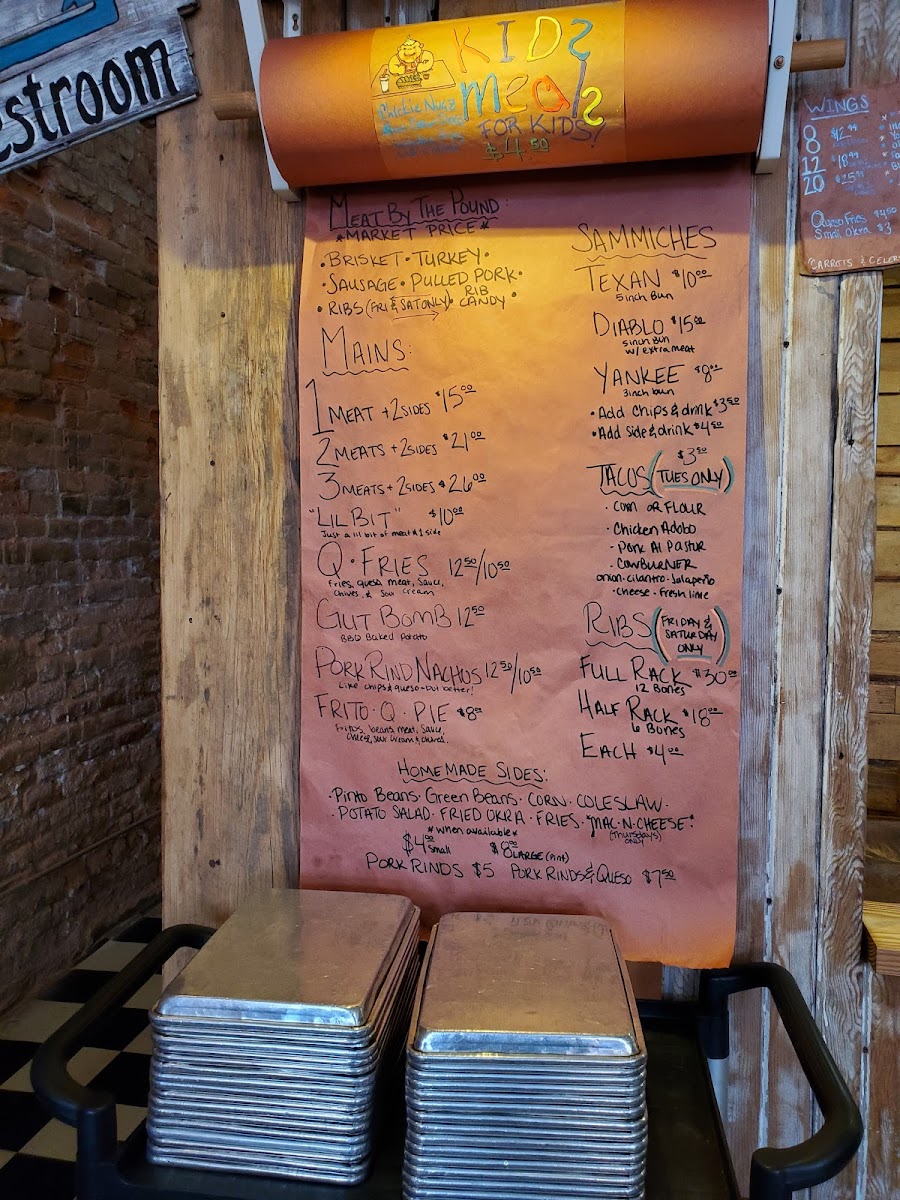 estroom
KIDS
Meals
FOR KIDS!
$4.50
Chickie Nugz
MEAT BY THE POUND:
*MARKET PRICE*
• BRISKET • TURKEY •
• SAUSAGE • PULLED PORK •
• RIBS (FRI & SAT ONLY) • RIB CANDY •
MAINS:
1 MEAT + 2 SIDES $15.00
2 MEATS + 2 SIDES $21.00
3 MEATS + 2 SIDES $26.00
"LIL BIT" $10.00
Just a lil bit of meat & 1 side
Q • FRIES 12.50/10.50
fries, queso, meat, sauce,
chives, & sour cream
GUT BOMB 12.50
BBQ Baked Potato
PORK RIND NACHOS 12.50/10.50
Like chips & queso - but better!
FRITO • Q • PIE $8.00
Fritos, beans, meat, sauce,
cheese, sour cream & chives.
SAMMICHES
TEXAN $10.00
5inch Bun
DIABLO $15.00
5inch Bun
w/ extra meat
YANKEE $8.00
3inch bun
• Add Chips & drink $3.50
• Add Side & drink $4.50
$3.50
TACOS (TUES ONLY)
• Corn OR FLOUR
• Chicken Adobo
• Pork Al Pastor
• COWBURNER
onion • cilantro • Jalapeño
• cheese • Fresh lime
RIBS (FRIDAY & SATURDAY ONLY)
FULL RACK $30.00
12 Bones
HALF RACK $18.00
6 Bones
EACH $4.00
HOMEMADE SIDES:
• Pinto Beans • Green Beans • CORN • COLESLAW •
• POTATO SALAD • FRIED OKRA • FRIES • *MAC-N-CHEESE*
*when available* (Thursdays ONLY)
$4.00 small $8.00 LARGE (Pint)
PORK RINDS $5 PORK RINDS & QUESO $7.50
WINGS
8 $12.99
12 $18.99
20 $25.99
Queso Fries $4.50
Small Okra $3
CARROTS & CELERY